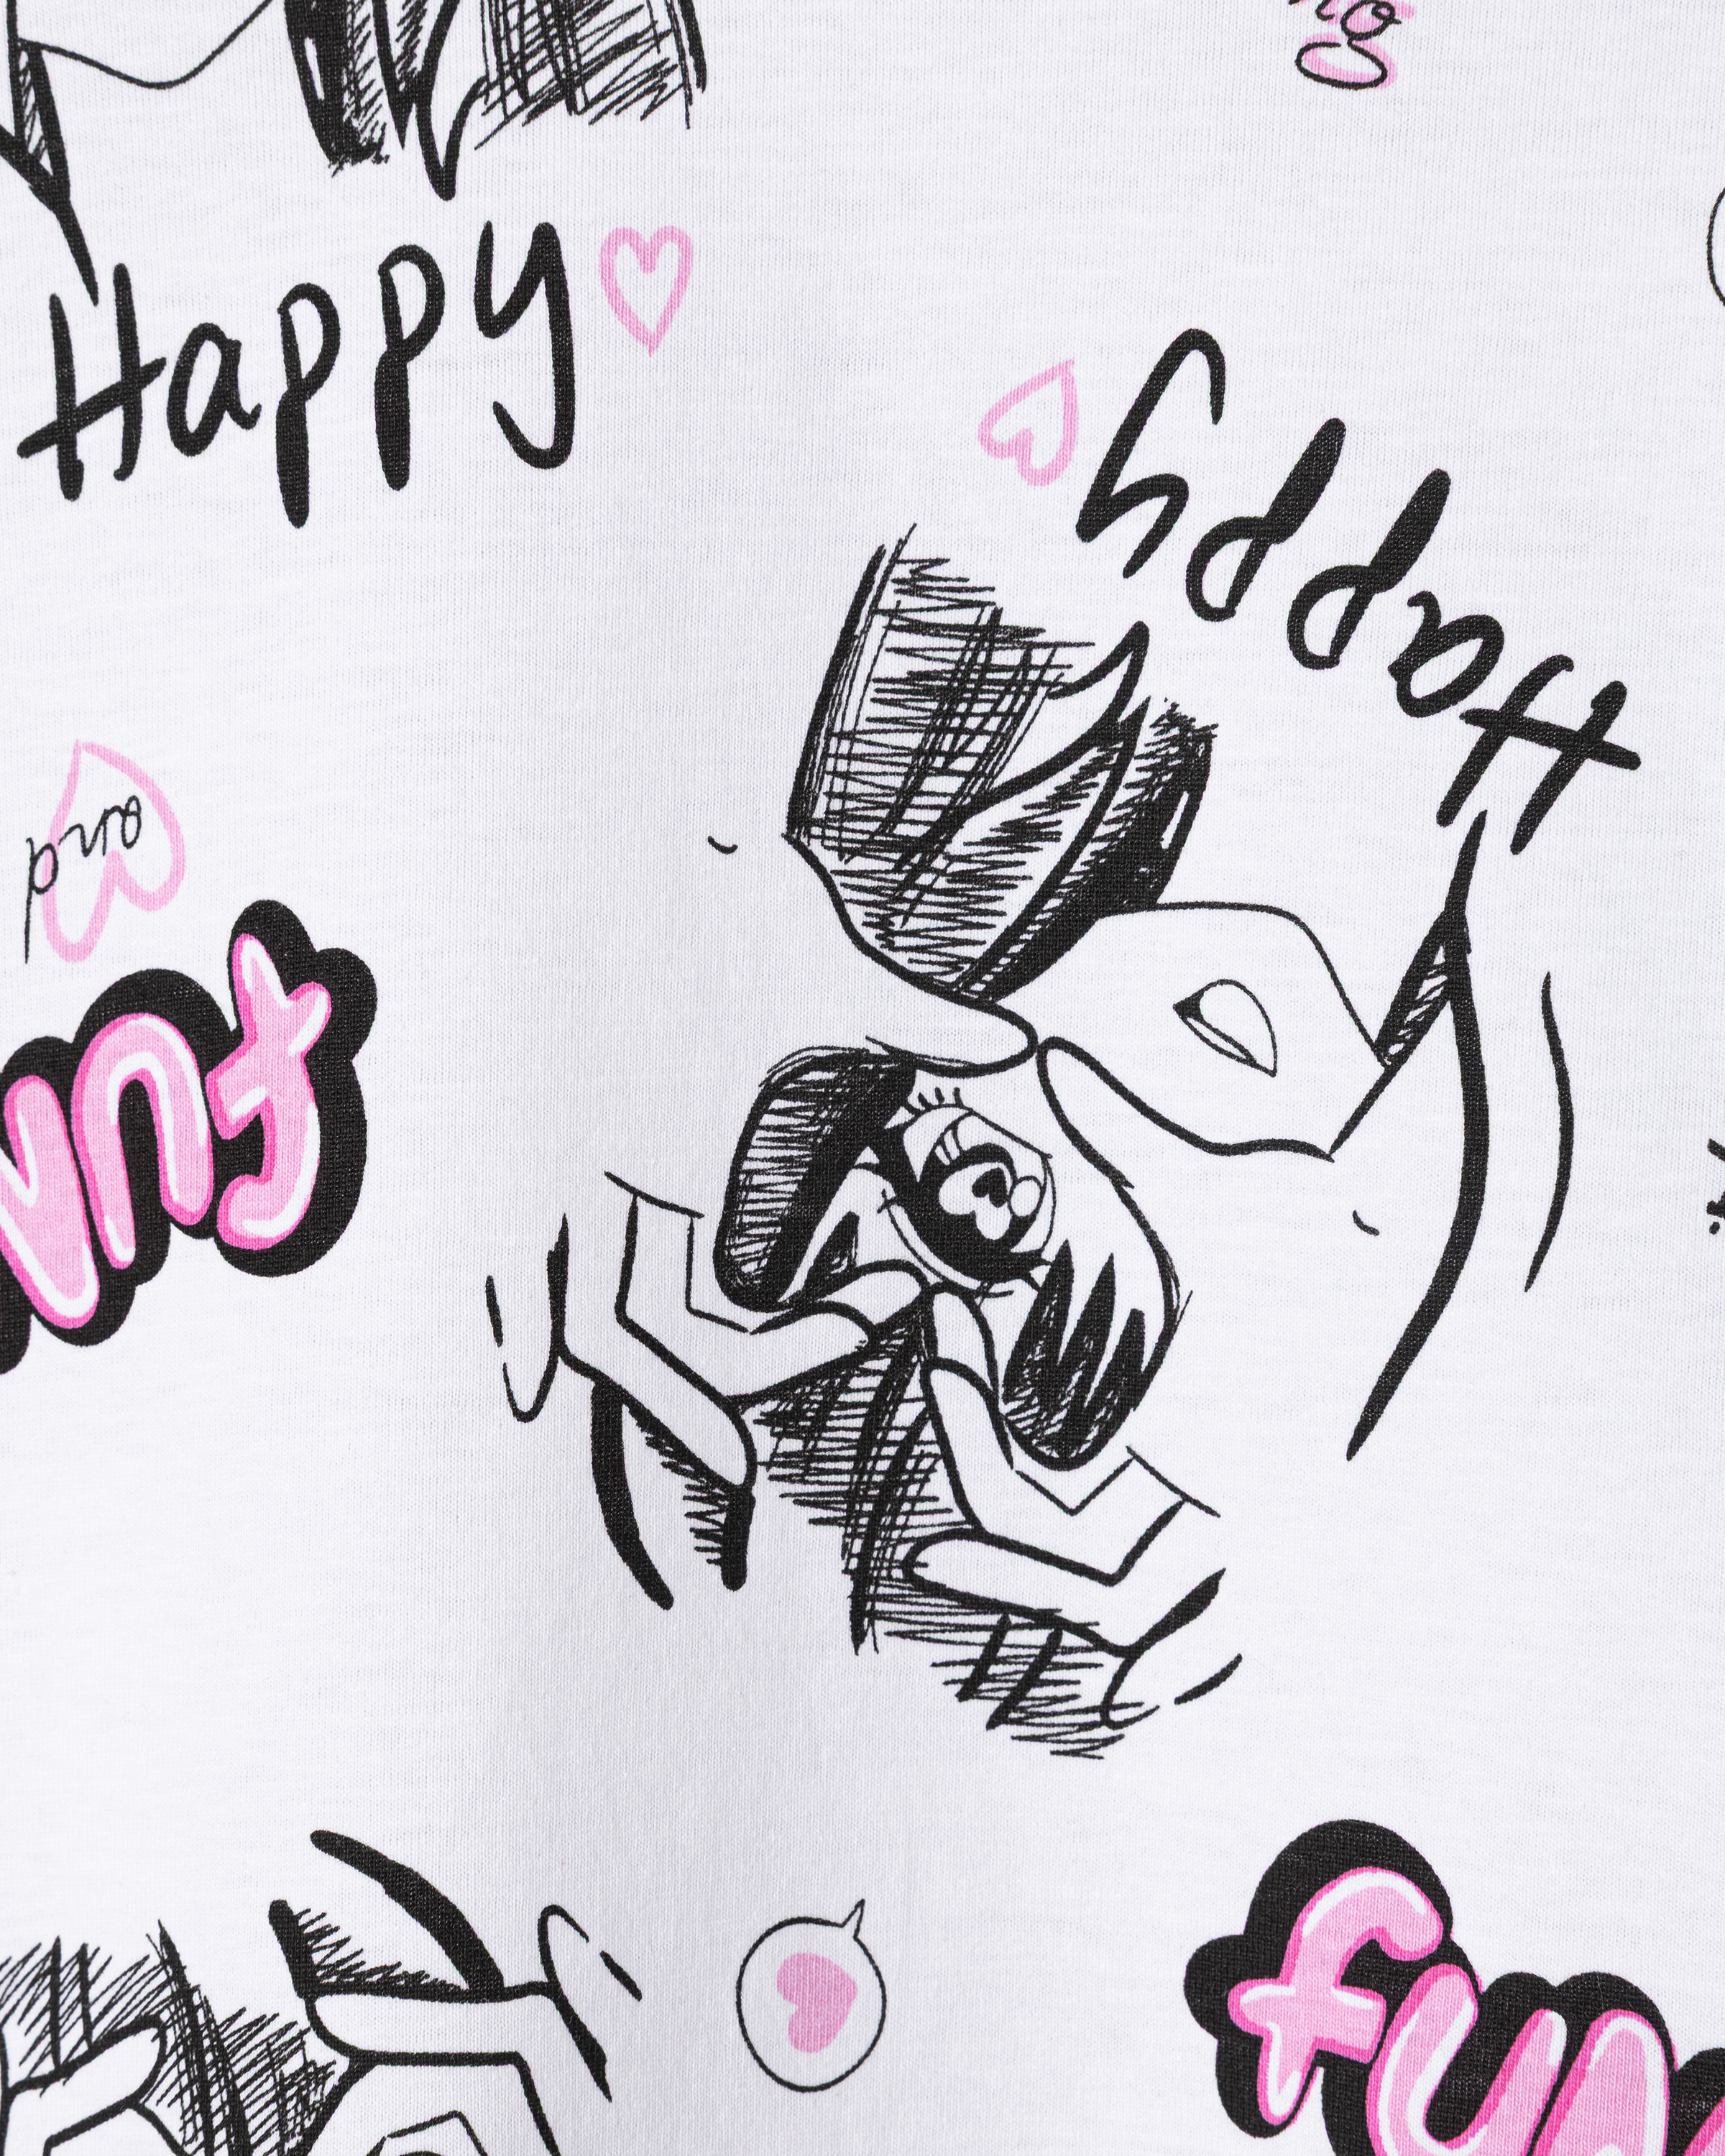 Happy
Happy
and
fun
fun